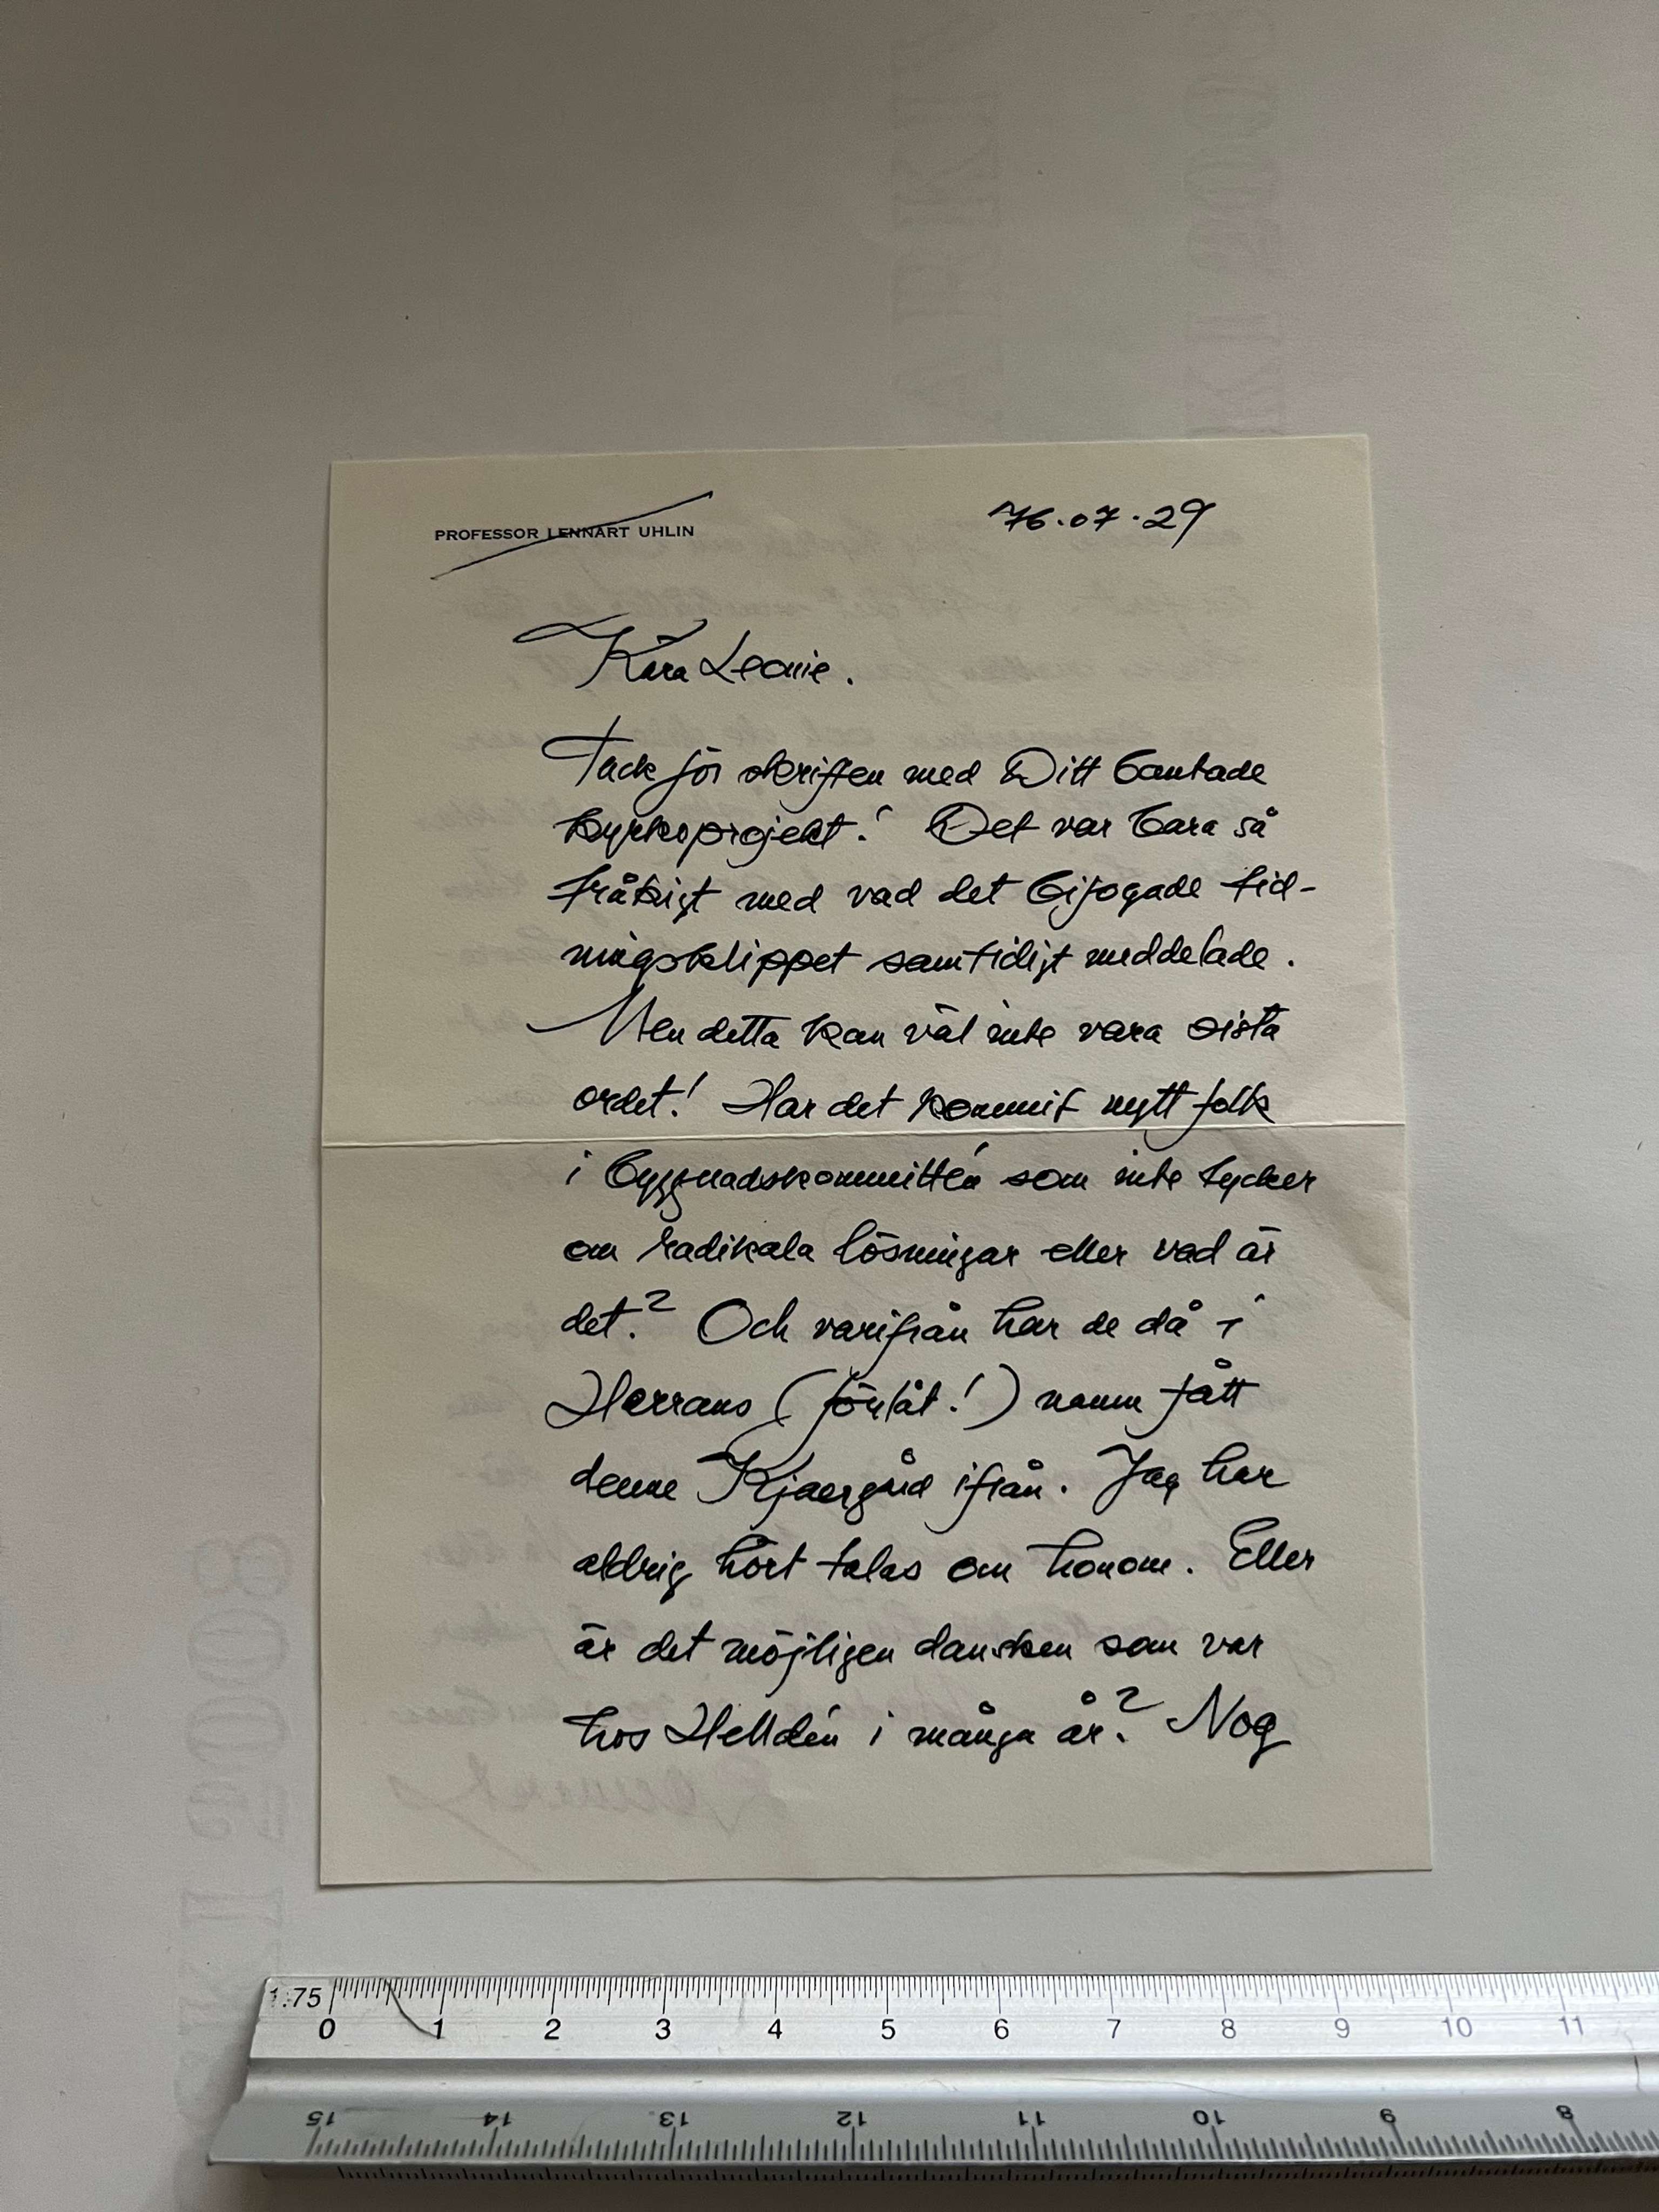 PROFESSOR LENNART UHLIN
76.07.29
Kära Leonie.
Tack för skriften med Ditt bantade
kyrkoprojekt! Det var bara så
tråkigt med vad det bifogade tid-
ningsklippet samtidigt meddelade.
Men detta kan väl inte vara sista
ordet! Har det kommit nytt folk
i byggnadskommittén som inte tycker
om radikala lösningar eller vad är
det? Och varifrån har de då i
Herrans (förlåt!) namn fått
denne Kjaergård ifrån. Jag har
aldrig hört talas om honom. Eller
är det möjligen dansken som var
hos Helldén i många år? Nog
1:75
0 1 2 3 4 5 6 7 8 9 10 11
15 14 13 12 11 10 9 8